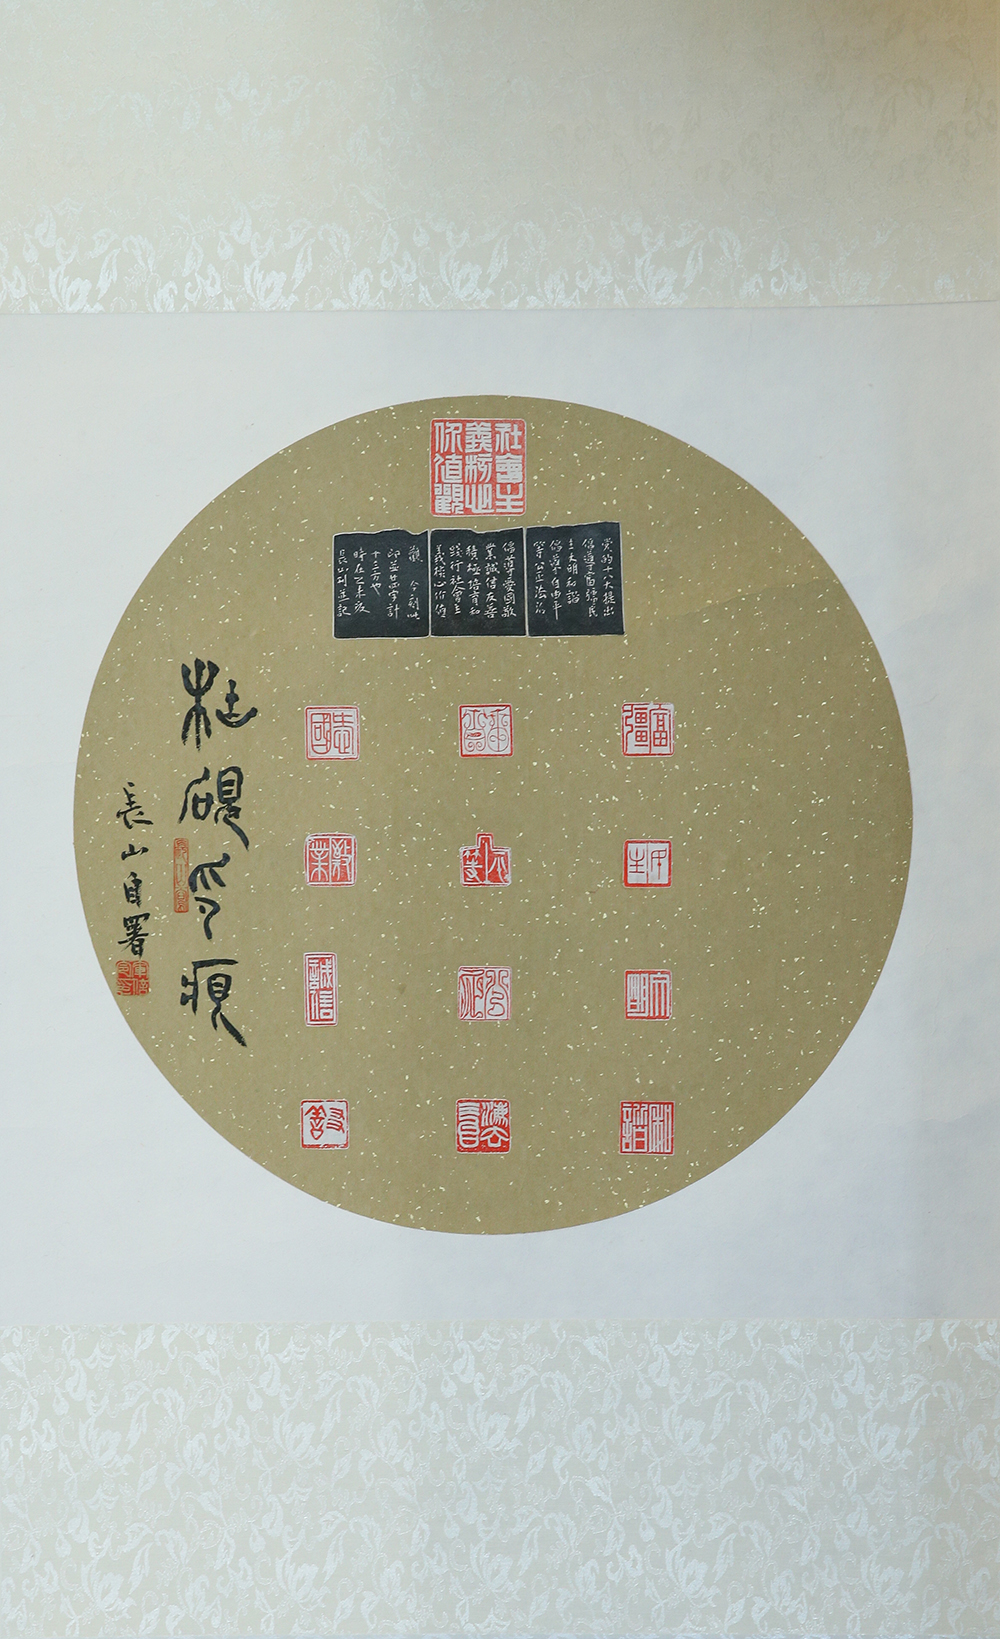 社會主
義核心
价值觀
党的十八大提出
倡導富強民
主文明和諧
倡導自由平
等公正法治
倡導愛國敬
業誠信友善
積極培育和
踐行社會主
義核心价值
觀 今刻此
印並廿四字計
十三方也
時在乙未
長山刻並記
富彊
民主
文明
和諧
自由
平等
公正
法治
愛國
敬業
誠信
友善
硯印痕
長山自署